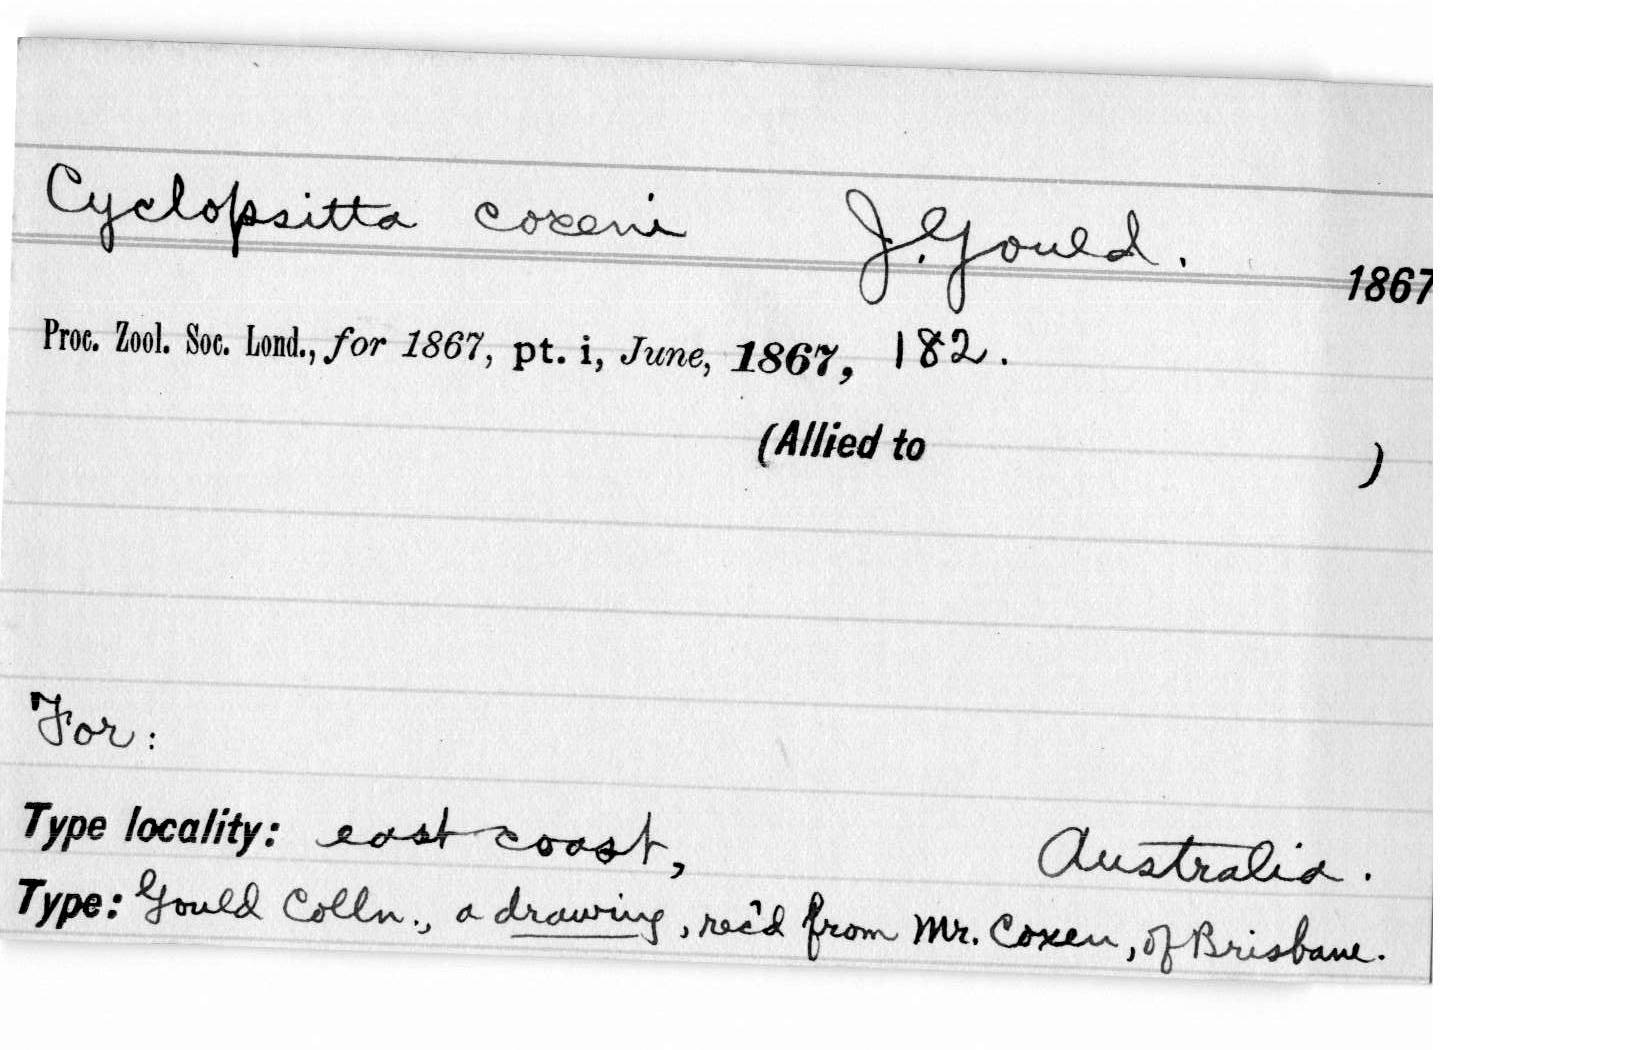 Cyclopsitta coxeni J. Gould. 1867
Proc. Zool. Soc. Lond., for 1867, pt. i, June, 1867, 182.
(Allied to )
For:
Type locality: east coast, Australia.
Type: Gould Colln., a drawing, rec'd from Mr. Coxen, of Brisbane.